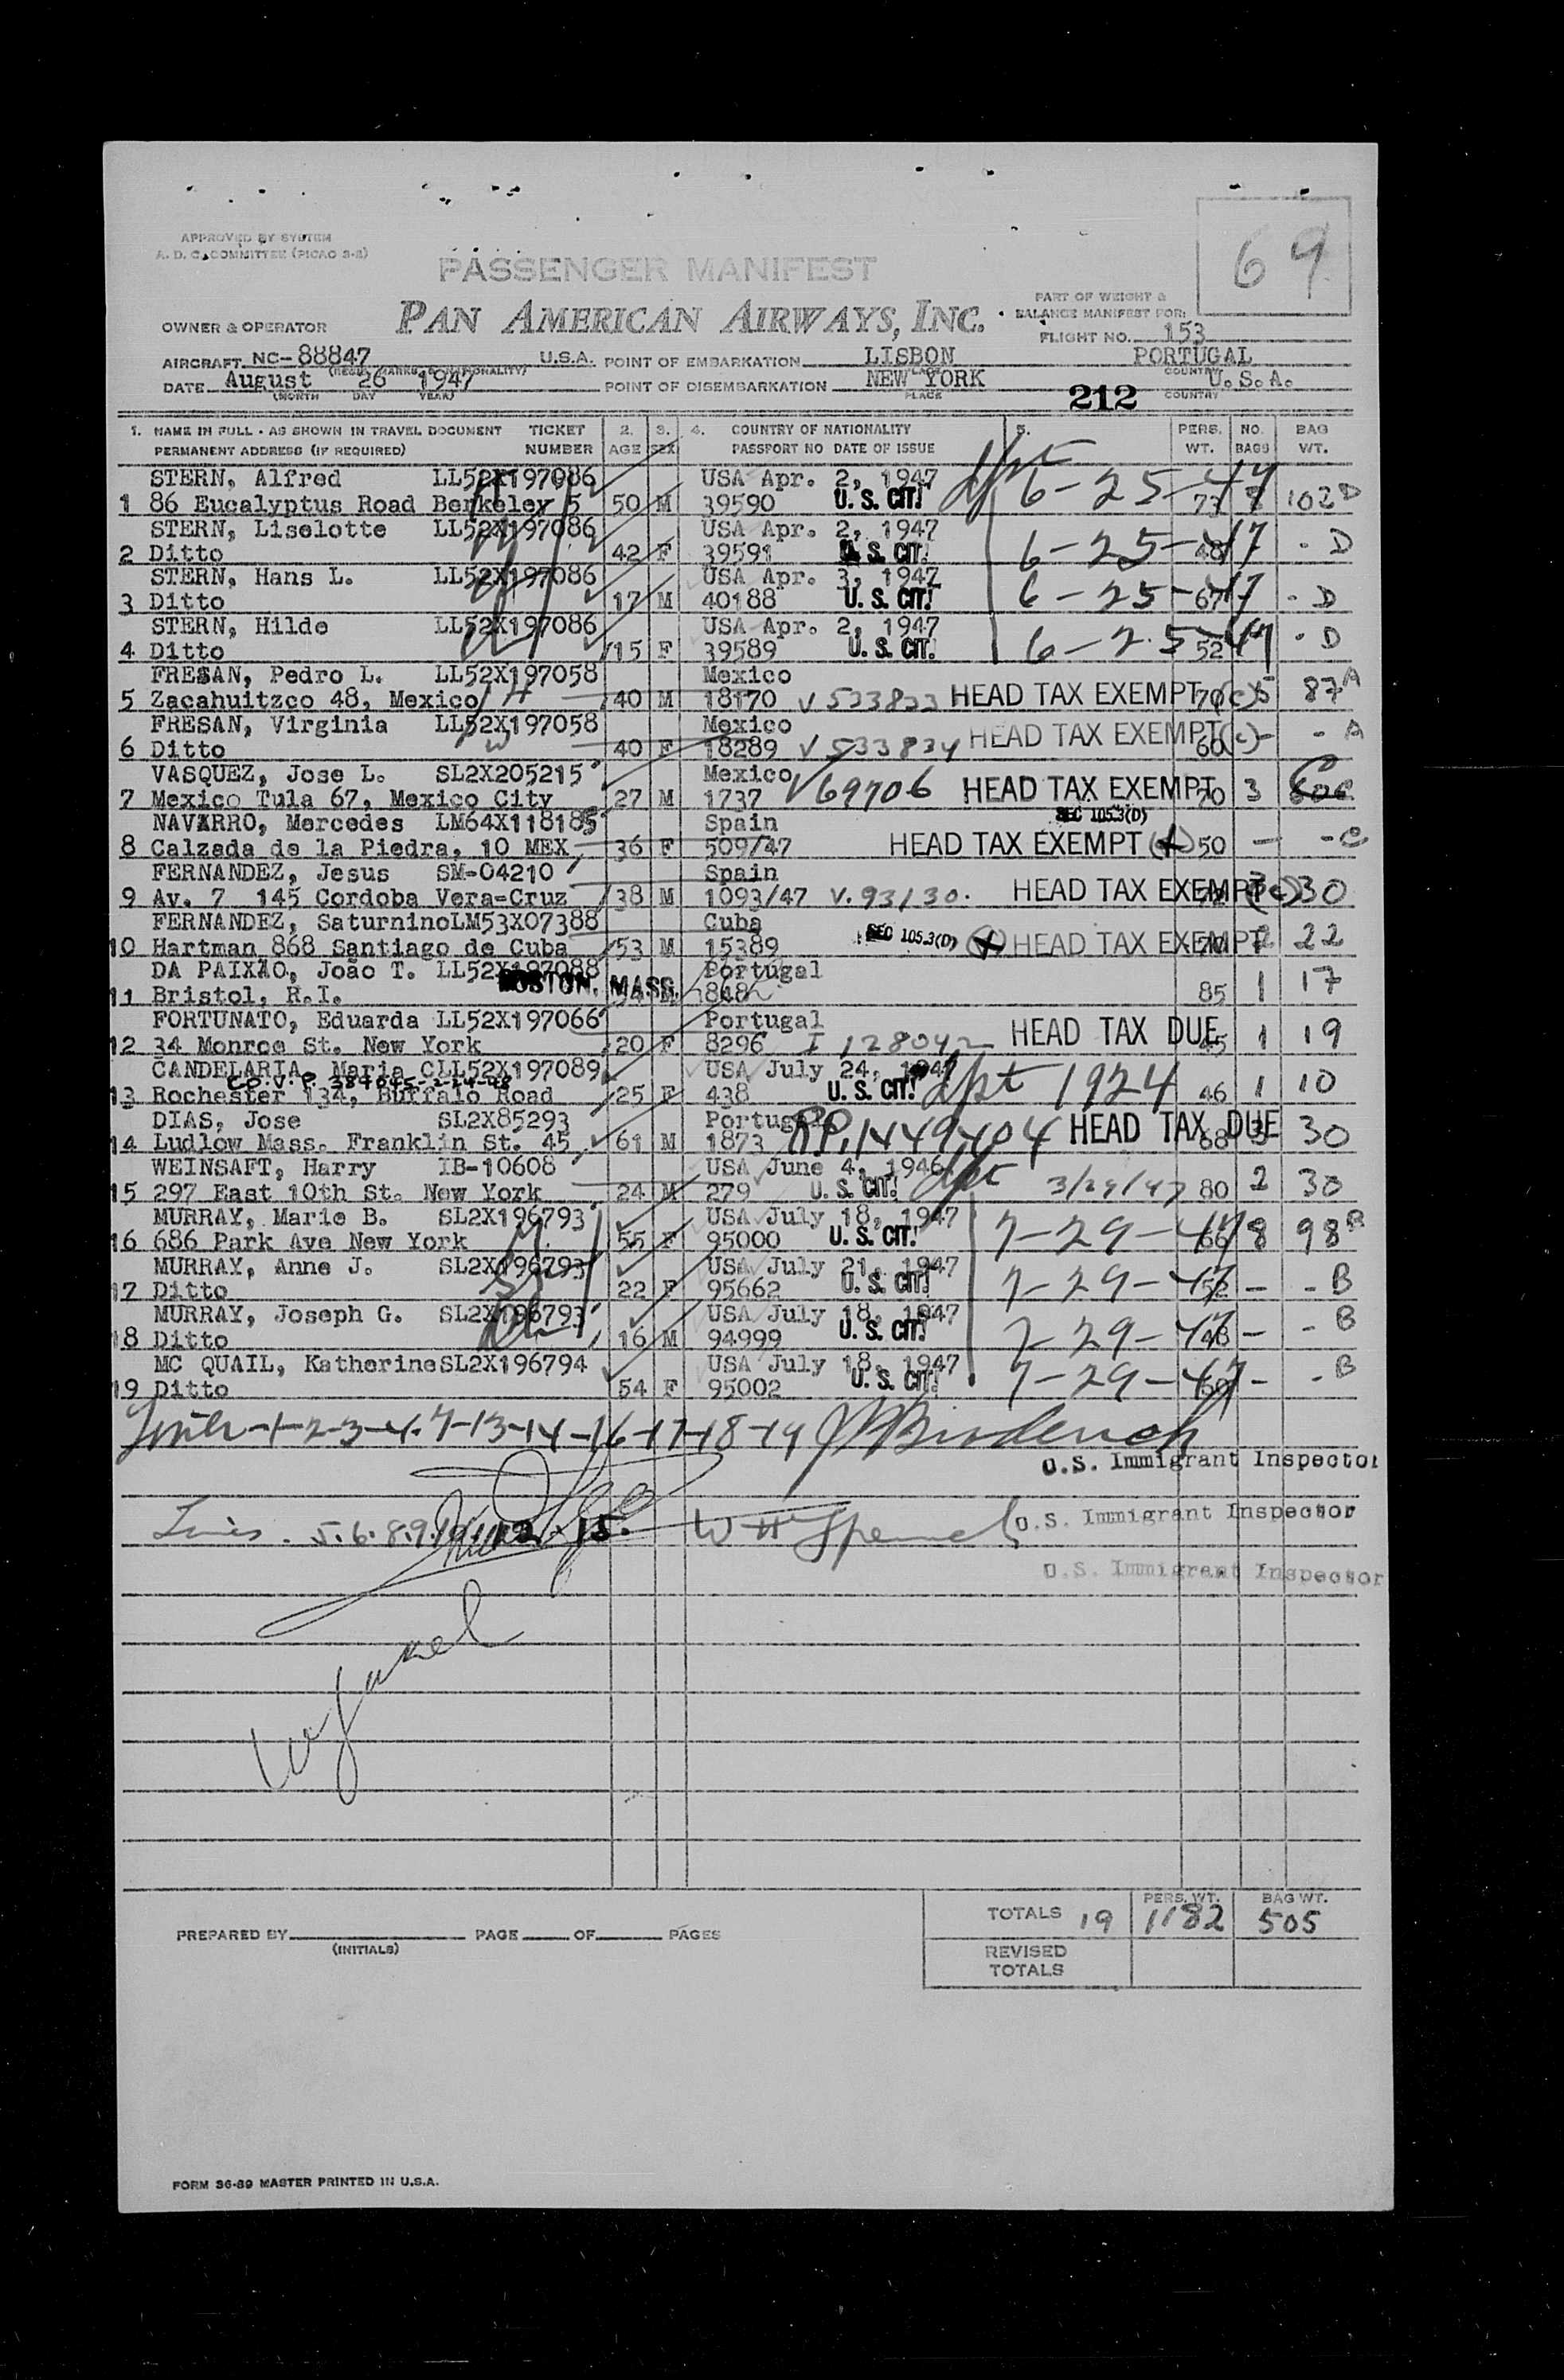 APPROVED BY SYSTEM
A. D. C. COMMITTEE (PICAO 3-2)
69
PASSENGER MANIFEST
PAN AMERICAN AIRWAYS, INC.
PART OF WEIGHT &
BALANCE MANIFEST FOR:
OWNER & OPERATOR
FLIGHT NO. 153
AIRCRAFT NC-88847 U.S.A. POINT OF EMBARKATION LISBON PORTUGAL
(REGIS. MARKS & NATIONALITY) PLACE COUNTRY
DATE August 26 1947 POINT OF DISEMBARKATION NEW YORK U.S.A.
(MONTH DAY YEAR) PLACE 212 COUNTRY
1. NAME IN FULL - AS SHOWN IN TRAVEL DOCUMENT TICKET 2. 3. 4. COUNTRY OF NATIONALITY 5. PERS. NO. BAG
PERMANENT ADDRESS (IF REQUIRED) NUMBER AGE SEX PASSPORT NO DATE OF ISSUE WT. BAGS WT.
STERN, Alfred LL52X197086 USA Apr. 2, 1947 dpt
1 86 Eucalyptus Road Berkeley 5 50 M 39590 U. S. CIT. 6-25-47 102 D
STERN, Liselotte LL52X197086 USA Apr. 2, 1947
2 Ditto 42 F 39591 U. S. CIT. 6-25-47 - D
STERN, Hans L. LL52X197086 USA Apr. 3, 1947
3 Ditto 17 M 40188 U. S. CIT. 6-25-47 67 - D
STERN, Hilde LL52X197086 USA Apr. 2, 1947
4 Ditto 15 F 39589 U. S. CIT. 6-25-47 52 - D
FRESAN, Pedro L. LL52X197058 Mexico
5 Zacahuitzco 48, Mexico 40 M 18170 V 533833 HEAD TAX EXEMPT (c) 70 5 87 A
FRESAN, Virginia LL52X197058 Mexico
6 Ditto 40 F 18289 V 533834 HEAD TAX EXEMPT (c) 60 - - A
VASQUEZ, Jose L. SL2X205215 Mexico
7 Mexico Tula 67, Mexico City 27 M 1737 V69706 HEAD TAX EXEMPT 70 3
NAVARRO, Mercedes LM64X118185 Spain SEC 105.3(D)
8 Calzada de la Piedra, 10 MEX 36 F 509/47 HEAD TAX EXEMPT 50 - - C
FERNANDEZ, Jesus SM-04210 Spain
9 Av. 7 145 Cordoba Vera-Cruz 38 M 1093/47 V.93130. HEAD TAX EXEMPT (c) 30
FERNANDEZ, Saturnino LM53X07388 Cuba
10 Hartman 868 Santiago de Cuba 53 M 15389 SEC 105.3(D) HEAD TAX EXEMPT 2 22
DA PAIXÃO, João T. LL52X197088 Portugal
11 Bristol, R.I. BOSTON, MASS. 848 85 1 17
FORTUNATO, Eduarda LL52X197066 Portugal
12 34 Monroe St. New York 20 F 8296 I 128042 HEAD TAX DUE 45 1 19
CANDELARIA, Maria C LL52X197089 USA July 24, 1947
13 Rochester 134, Buffalo Road 25 F 438 U. S. CIT. dpt 1924 46 1 10
DIAS, Jose SL2X85293 Portugal
14 Ludlow Mass. Franklin St. 45 61 M 1873 RP.1449404 HEAD TAX DUE 68 3 30
WEINSAFT, Harry IB-10608 USA June 4, 1946
15 297 East 10th St. New York 24 M 279 U. S. CIT. dpt 3/29/47 80 2 30
MURRAY, Marie B. SL2X196793 USA July 18, 1947
16 686 Park Ave New York 55 F 95000 U. S. CIT. 7-29-47 66 8 98 B
MURRAY, Anne J. SL2X196793 USA July 21, 1947
17 Ditto 22 F 95662 U. S. CIT. 7-29-47 52 - - B
MURRAY, Joseph G. SL2X196793 USA July 18, 1947
18 Ditto 16 M 94999 U. S. CIT. 7-29-47 48 - - B
MC QUAIL, Katherine SL2X196794 USA July 18, 1947
19 Ditto 54 F 95002 U. S. CIT. 7-29-47 - - B
Lines-1-2-3-4-7-13-14-16-17-18-19 Broderick
U.S. Immigrant Inspector
Lines. 5.6.8.9.10.11.12.15. W H U.S. Immigrant Inspector
U.S. Immigrant Inspector
TOTALS 19 PERS. WT. 1182 BAG WT. 505
PREPARED BY (INITIALS) PAGE OF PAGES
REVISED TOTALS
FORM 36-89 MASTER PRINTED IN U.S.A.